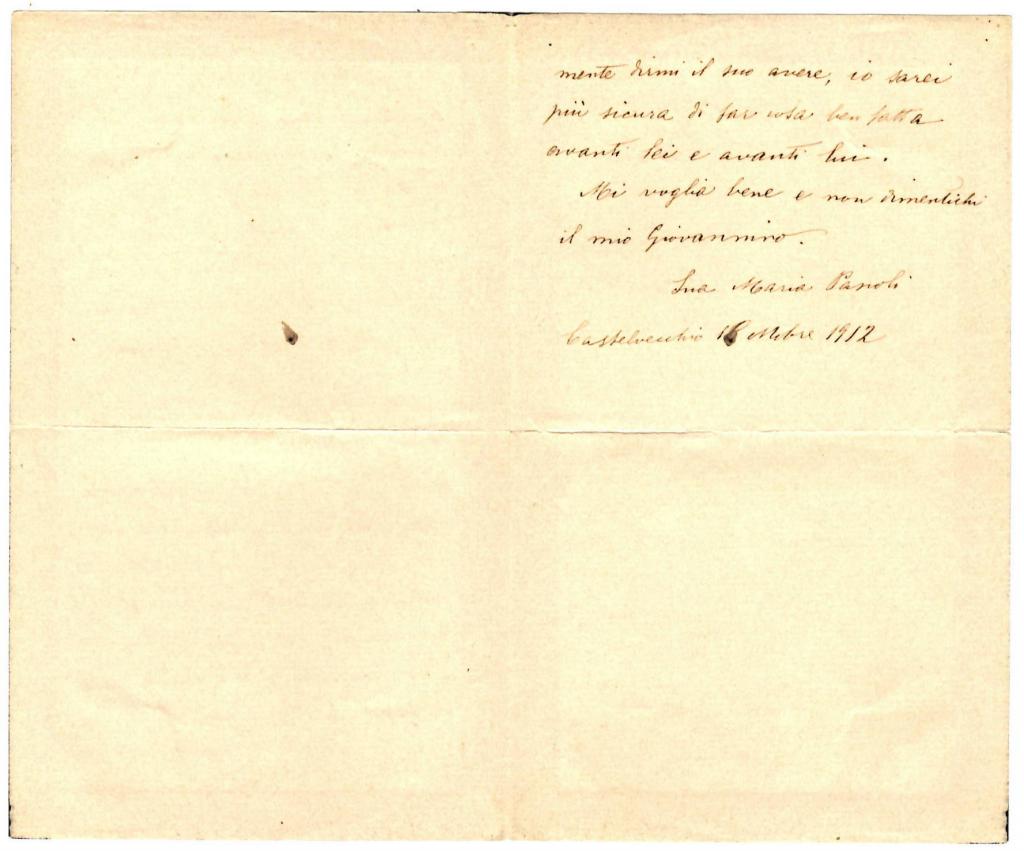 mente dirmi il suo avere, io sarei
più sicura di far cosa ben fatta
avanti lei e avanti lui.
Mi voglia bene e non dimentichi
il mio Giovannino.
Sua Maria Pascoli
Castelvecchio ottobre 1912